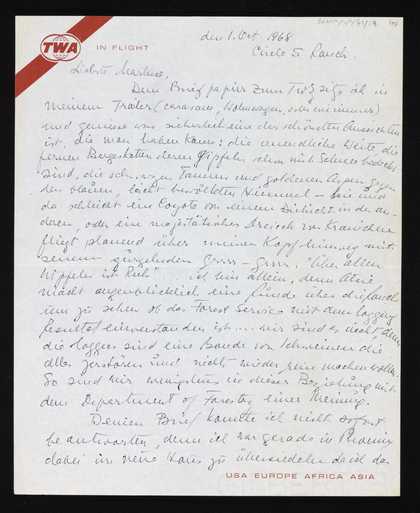 TWA
IN FLIGHT
den 1. Okt 1968
Circle 5 Ranch.
Liebste Marlene,
Dem Briefpapier zum Trotz sitze ich in
meinem Trailer (caravane, Wohnwagen, oder wie immer)
und geniesse was sicherlich eine der schönsten Aussichten
ist, die man haben kann: die unendliche Weite, die
fernen Bergketten deren Gipfel schon mit Schnee bedeckt
sind, die schwarzen Tannen und goldenen Aspen gegen
den blauen, leicht bewölkten Himmel – hie und
da schleicht ein Coyote von einem Dickicht in der an-
deren, oder ein majestätisches Dreieck von Kranichen
fliegt planend über meinen Kopf hinweg mit
seinem Grrrr – Grrrr. "Über allen
Wipfeln ist Ruh" ich bin allein, denn
macht augenblicklich eine Runde über die Ranch
um zu sehen ob das Forest Service mit dem logging
einverstanden ist ... wir sind es nicht, denn
die loggers sind eine Bande von Schweinen die
alles zerstören und nicht wieder reine machen wollen.
So sind wir wenigstens in dieser Beziehung mit
dem Department of Forestry einer Meinung.
Deinen Brief konnte ich nicht sofort
beantworten, denn ich war gerade in Phoenix
dabei in neue Haus zu übersiedeln da ich das
USA EUROPE AFRICA ASIA